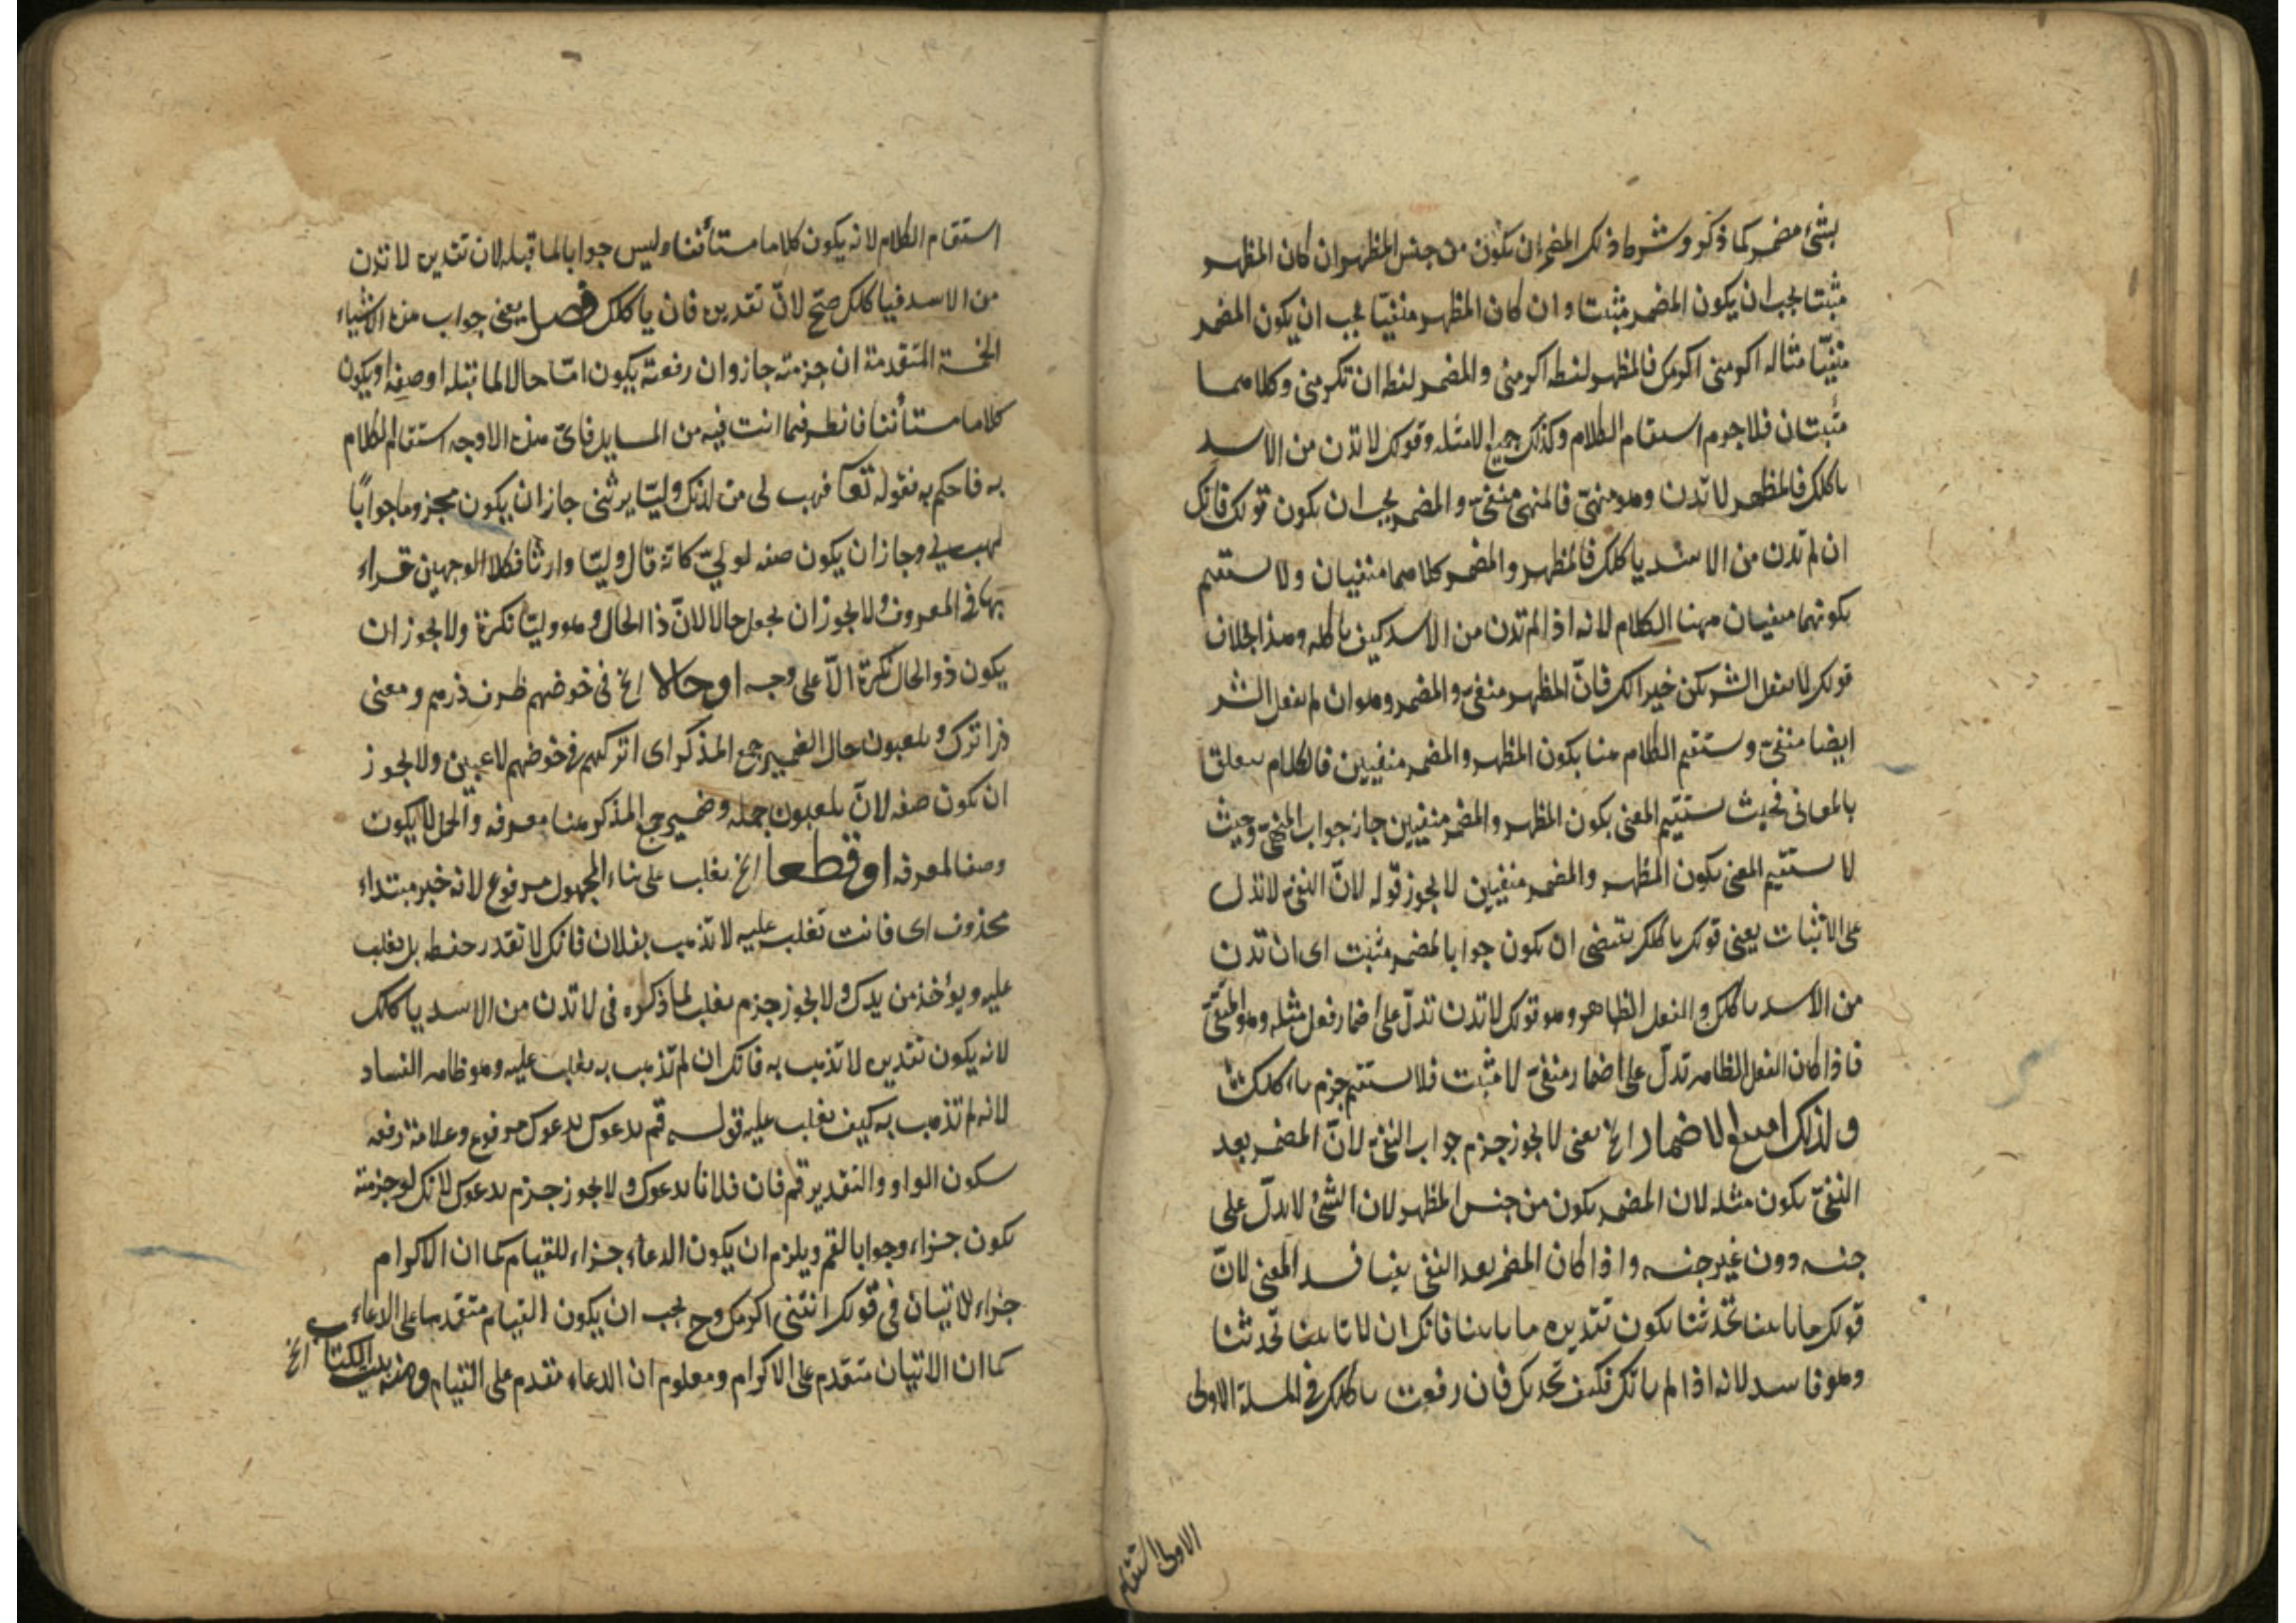 بشئ مضمر كما ذكر وشرط ذلك المضمر ان يكون من جنس المظهر ان كان المظهر
مثبتا يجب ان يكون المضمر مثبتا وان كان المظهر منفيّا يجب ان يكون المضمر
منفيّا مثاله اكرمنى اكرمك فالمظهر لفظه اكرمنى والمضمر لفظه ان تكرمنى وكلاهما
مثبتان فلاجرم استقام الكلام وكذلك جميع الامثله وقولك لا تدن من الاسد
ياكلك فالمظهر لا تدن وهو منهىّ فالمنهى منفىّ والمضمر يجب ان يكون قولك فانك
ان لم تدن من الاسد ياكلك فالمظهر والمضمر كلاهما منفيان ولا يستقيم
بكونهما منفيان ههنا الكلام لانه اذا لم تدن من الاسد كيف ياكله وهذا بخلاف
قولك لا تفعل الشر يكن خيرا لك فانّ المظهر منفىّ والمضمر وهو ان لم تفعل الشر
ايضا منفىّ ويستقيم الكلام هنا بكون المظهر والمضمر منفيين فالكلام يتعلق
بالمعانى فحيث يستقيم المعنى بكون المظهر والمضمر منفيين جاز جواب النهى وحيث
لا يستقيم المعنى بكون المظهر والمضمر منفيين لا يجوز قوله لانّ النفى لا تدل
على الاثبات يعنى قولك ياكلك يقتضى ان يكون جوابا لمضمر مثبت اى ان تدن
من الاسد ياكلك والفعل الظاهر وهو قولك لا تدن تدلّ على اضمار فعل مثله وهو المنفىّ
فاذا كان الفعل الظاهر تدلّ على اضمار منفىّ لا مثبت فلا يستقيم جزم ياكلك
ولذلك امتنع الاضمار الخ يعنى لا يجوز جزم جواب النفى لانّ المضمر بعد
النفىّ يكون مثله لان المضمر يكون من جنس المظهر لان الشئ لا يدلّ على
جنسه دون غير جنسه واذا كان المضمر بعد النفى نفيا فسد المعنى لانّ
قولك ما تاتينا تحدثنا يكون تقديره ما تاتينا فانك ان لا تاتينا تحدثنا
وهو فاسد لانه اذا لم ياتك فكيف تحدثك فان رفعت ياكلك فى المسلة الاولى
الاولى استقام
استقام الكلام لانه يكون كلاما مستأنفا وليس جوابا لما قبله لان تقديره لا تدن
من الاسد فياكلك صحّ لانّ تقديره فان ياكلك فصل يعنى جواب هذه الاشياء
الخمسة المتقدمة ان جزمته جاز وان رفعته يكون امّا حالا لما قبله او صفه او يكون
كلاما مستأنفا فانظر فيما انت فيه من المسايل فاىّ هذه الاوجه استقام الكلام
به فاحكم به فقوله تعا فهب لى من لدنك وليّا يرثنى جاز ان يكون مجزوما جوابًا
لهب لى وجاز ان يكون صفه لوليّ كانّه قال وليّا وارثا فكلا الوجهين قراء
بها فى المعروف ولا يجوز ان يجعل حالا لانّ ذا الحال وهو وليّا نكرة ولا يجوز ان
يكون ذو الحال نكرة الّا على وجه او حالا الخ فى خوضهم ظرف ذرهم ومعنى
ذر اترك ويلعبون حال الضمير جمع المذكر اى اتركهم فى خوضهم لاعبين ولا يجوز
ان يكون صفه لانّ يلعبون جمله وضمير جمع المذكر هنا معرفه والجمل لا يكون
وصفا لمعرفه او قطعا الخ تغلب على بناء المجهول مرفوع لانه خبر مبتداء
محذوف اى فانت تغلب عليه لا تذهب بفلان فانك لا تقدر حفظه بل تغلب
عليه ويؤخذ من يدك ولا يجوز جزم تغلب لما ذكره فى لا تدن من الاسد ياكلك
لانه يكون تقديره لا تذهب به فانك ان لم تذهب به تغلب عليه وهو ظاهر الفساد
لانه لم تذهب به كيف تغلب عليه قوله قم يدعوك يدعوك مرفوع وعلامة رفعه
سكون الواو والتقدير قم فان فلانا يدعوك ولا يجوز جزم يدعوك لانك لو جزمته
يكون جزاء وجوابا لقم ويلزم ان يكون الدعاء جزاء للقيام كما ان الاكرام
جزاء للاتيان فى قولك ائتنى اكرمك وح يجب ان يكون القيام متقدما على الدعاء
كما ان الاتيان متقدم على الاكرام ومعلوم ان الدعاء مقدم على القيام ومنه بيت الكتاب الخ